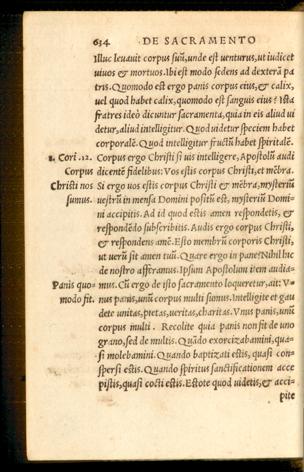 634 DE SACRAMENTO
Illuc leuauit corpus suũ, unde est uenturus, ut iudicet
uiuos & mortuos. Ibi est modo sedens ad dexterã pa
tris. Quomodo est ergo panis corpus eius, & calix,
uel quod habet calix, quomodo est sanguis eius? Ista
fratres ideò dicuntur sacramenta, quia in eis aliud ui
detur, aliud intelligitur. Quod uidetur speciem habet
corporalẽ. Quod intelligitur fructũ habet spiritalẽ.
1. Cori .12. Corpus ergo Christi si uis intelligere, Apostolũ audi
Corpus dicentẽ fidelibus: Vos estis corpus Christi, et mẽbra.
Christi nos Si ergo uos estis corpus Christi & mẽbra, mysteriũ
sumus. uestrũ in mensa Domini positũ est, mysteriũ Domi-
ni accipitis. Ad id quod estis amen respondetis, &
respondẽdo subscribitis. Audis ergo corpus Christi,
& respondens amẽ. Esto membrũ corporis Christi,
ut uerũ sit amen tuũ. Quare ergo in pane? Nihil hic
de nostro afferamus. Ipsum Apostolum item audia-
Panis quo- mus. Cũ ergo de isto sacramento loqueretur, ait: V-
modo fit. nus panis, unũ corpus multi sumus. Intelligite et gau
dete unitas, pietas, ueritas, charitas. Vnus panis, unũ
corpus multi. Recolite quia panis non fit de uno
grano, sed de multis. Quãdo exorcizabamini, qua-
si molebamini. Quãdo baptizati estis, quasi con-
spersi estis. Quando spiritus sanctificationem acce
pistis, quasi cocti estis. Estote quod uidetis, & acci-
pite